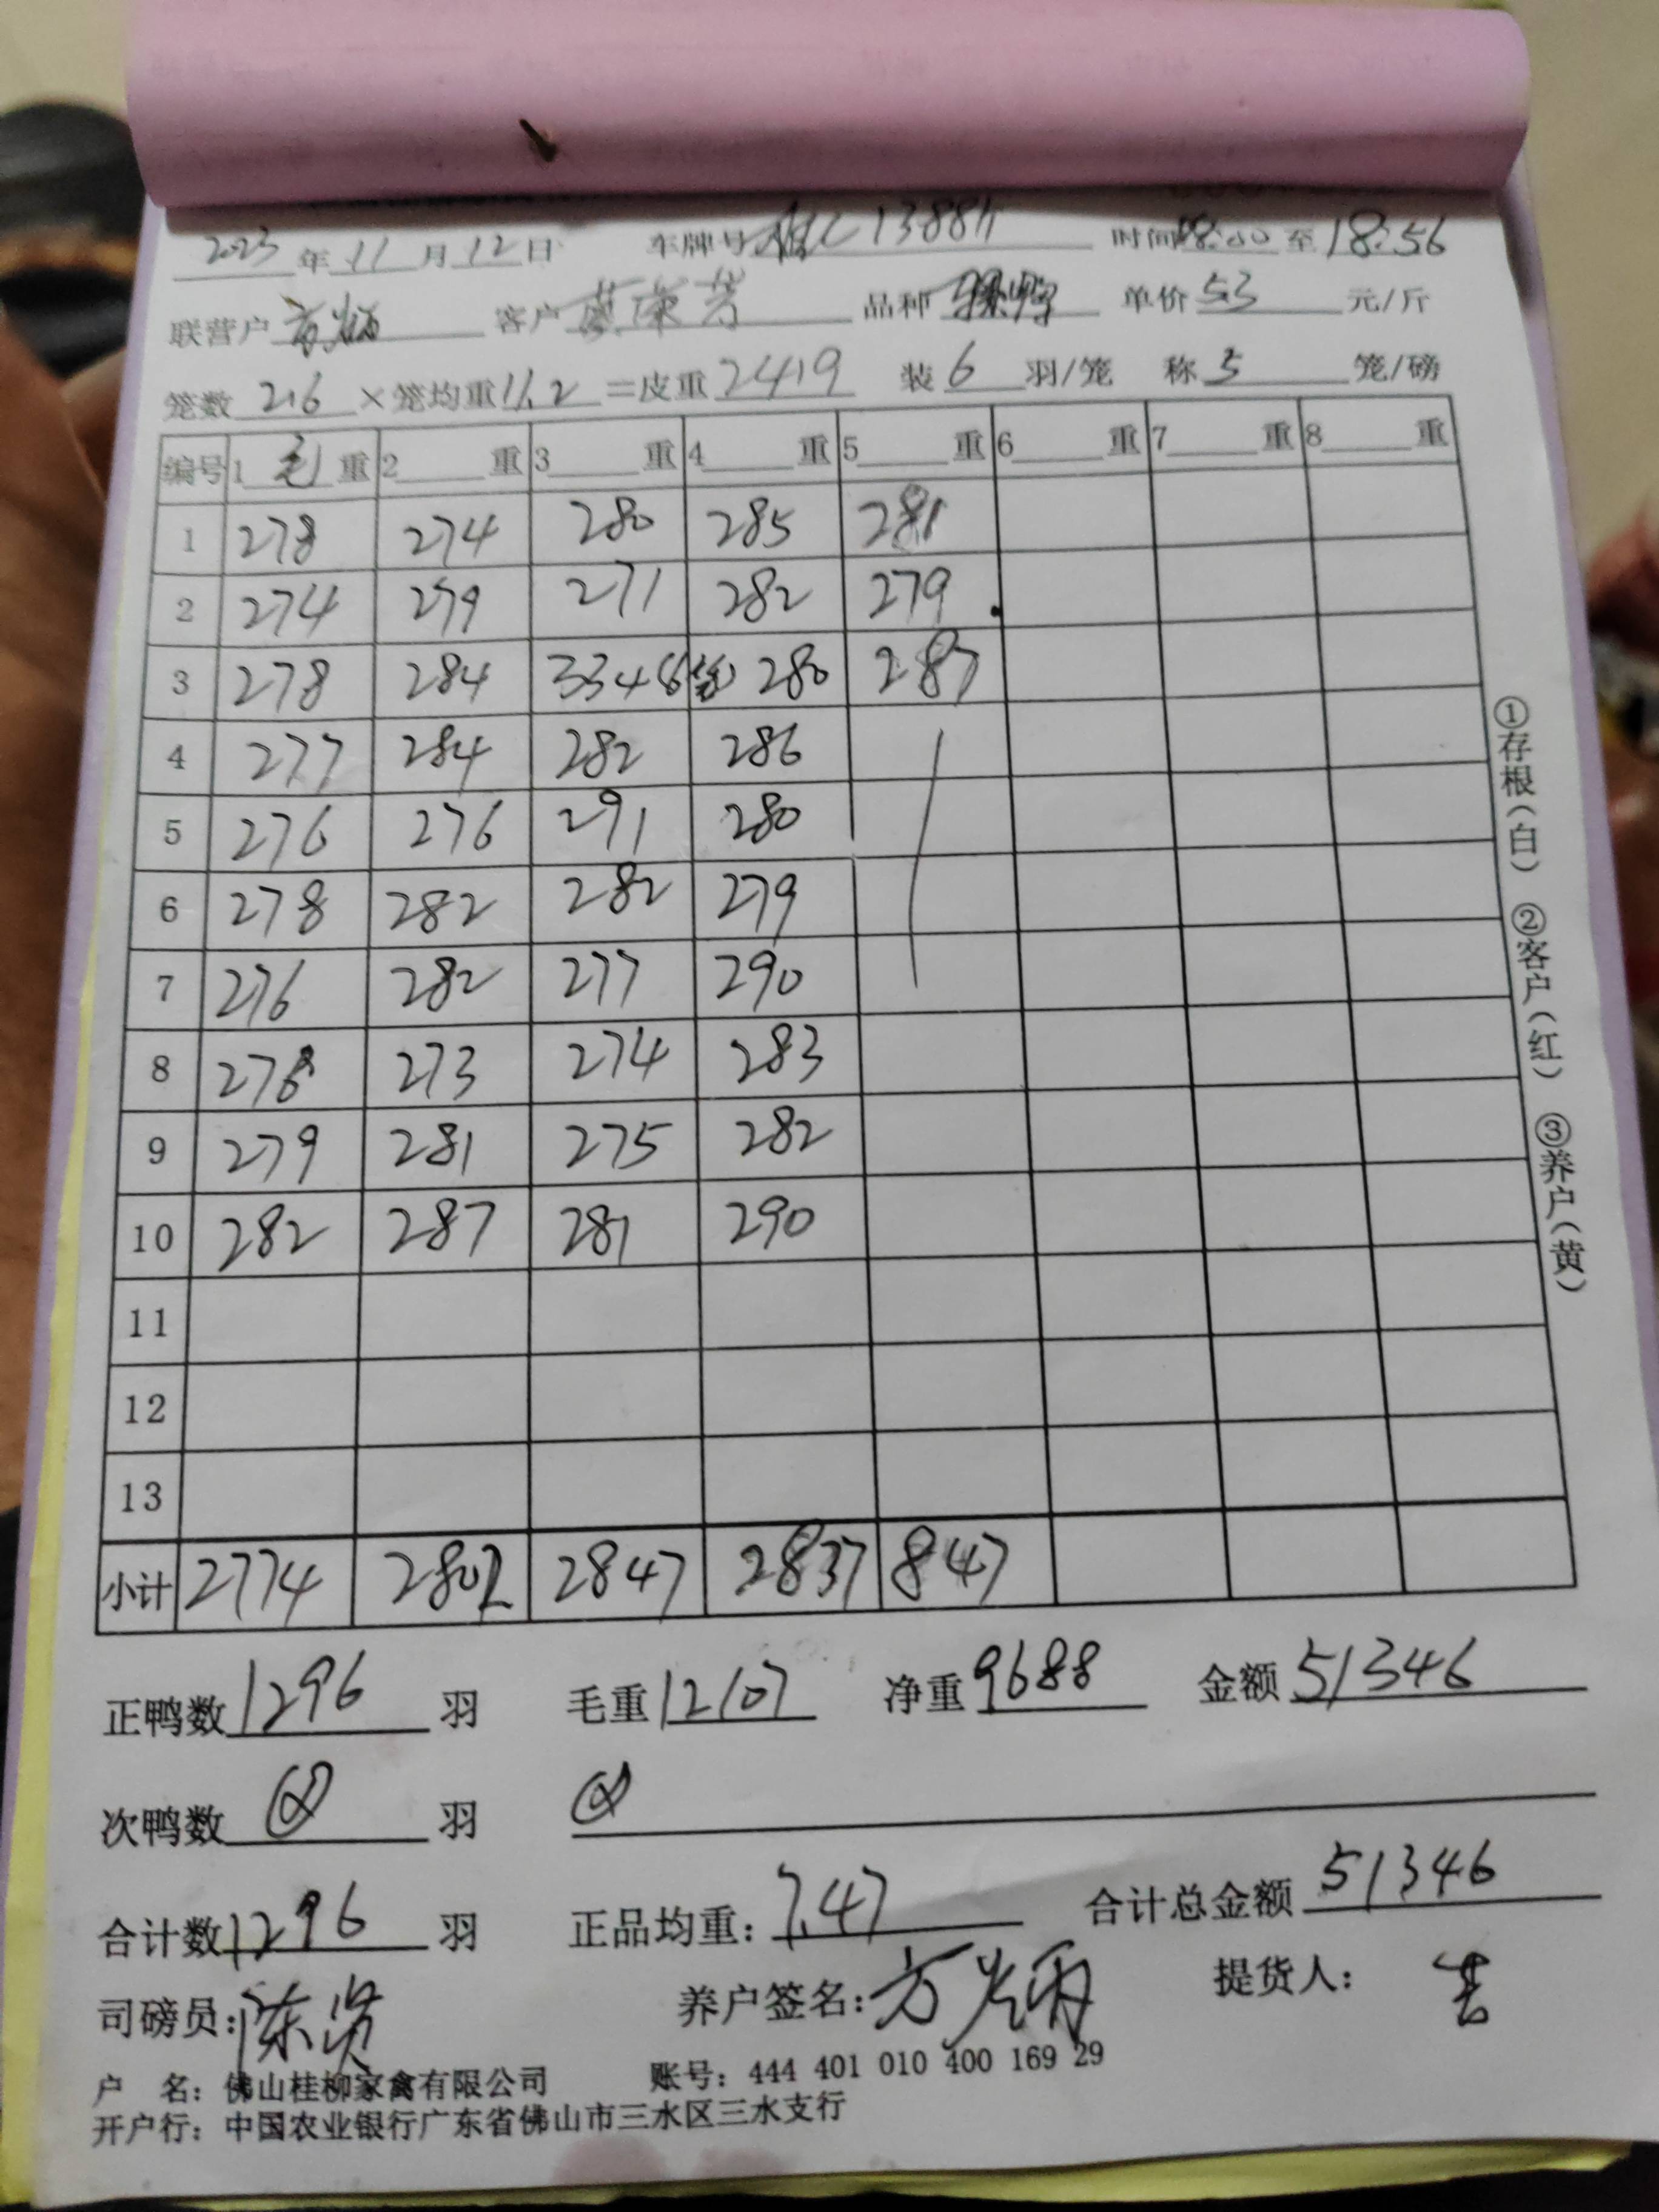 2023年11月12日 车牌号 13884 时间18:00至18:56
联营户方炳 客户 荣芳 品种 单价5.3元/斤
笼数216×笼均重11.2=皮重2419 装6羽/笼 称5笼/磅
编号 1毛重 2重 3重 4重 5重 6重 7重 8重
1 278 274 280 285 281
2 274 279 271 282 279
3 278 284 334 6笼 280 287
4 277 284 282 286
5 276 276 291 280
6 278 282 282 279
7 276 282 277 290
8 278 273 274 283
9 279 281 275 282
10 282 287 281 290
11
12
13
小计 2774 2802 2847 2837 847
正鸭数1296羽 毛重12107 净重9688 金额51346
次鸭数 羽
合计数1296羽 正品均重：7.47 合计总金额51346
司磅员：陈贤 养户签名：方炳 提货人：
户 名：佛山桂柳家禽有限公司 账号：444 401 010 400 169 29
开户行：中国农业银行广东省佛山市三水区三水支行
①存根（白） ②客户（红） ③养户（黄）